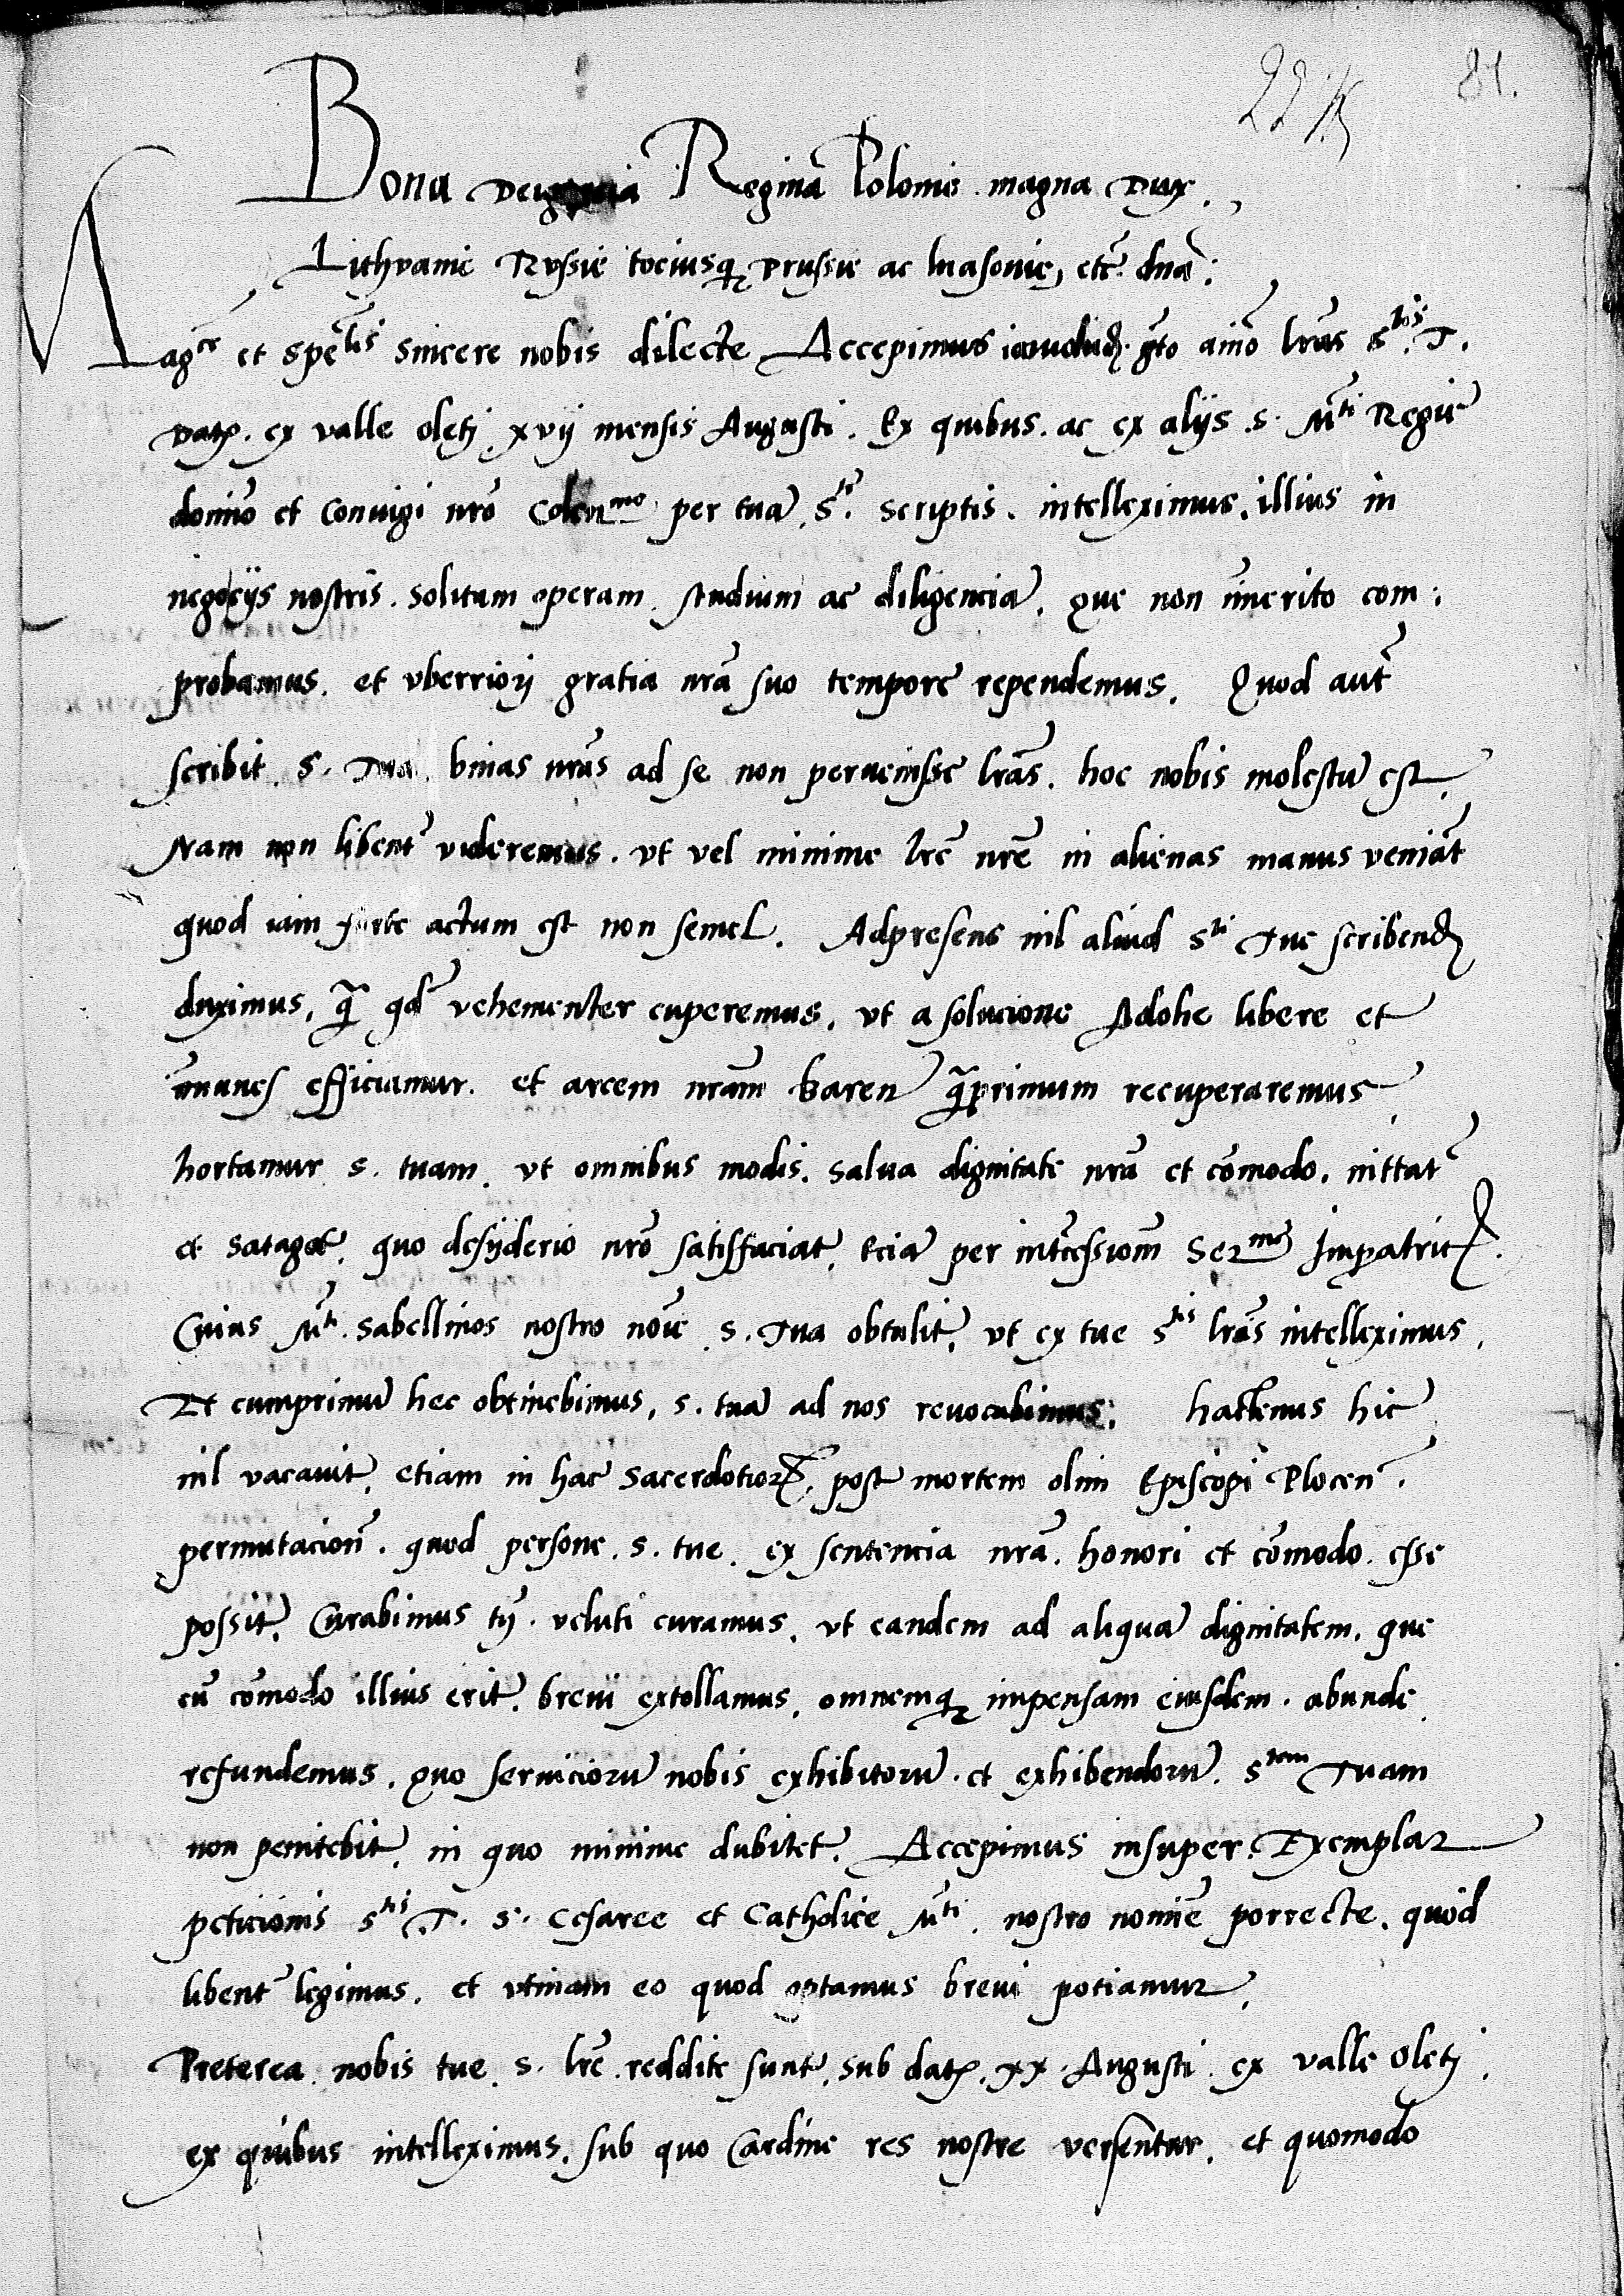 81.
Bona dei gracia Regina Polonie magna Dux
Lithvanie Rvssie tociusq Prussie ac Masovie, etc. dna:
Magce et Spelis sincere nobis dilecte Accepimus iamdudu gto aimo lras Stis T.
Dat. ex valle oleti xvij mensis Augusti. Ex quibus. ac ex alijs. s. Mti Regie
domino et Coniugi nro Colenmo per tua Ste. scriptis. intelleximus. illius in
negocijs nostris. solitam operam. studium ac diligencia. que non imerito com:
probamus. et vberriori gratia nra suo tempore rependemus. Quod aut
scribit. S. Tua. binas nras ad se non pervenisse lras. hoc nobis molestu est.
Nam non libent videremus. vt vel minime lre nre in alienas manus veniat
quod iam forte actum est non semel. Adpresens nil aliud Sti Tue scribend
duximus, q qd vehementer cuperemus. vt a solucione Adohe libere et
imunes efficiamur. et arcem nram baren qprimum recuperaremus
hortamur s. tuam. vt omnibus modis. salua dignitate nra et comodo. nittat
et satagat. quo desyderio nro satisfaciat. Ecia per intcessiom Sermę Impatric.
Cuius Mti. sabellinos nostro noie. S. Tua obtulit. vt ex tue Stis lras intelleximus.
Et cumprimu hec obtinebimus, s. tua ad nos revocabimus: hactenus hic
nil vacauit, etiam in hac sacerdotior. post mortem olim Episcopi Plocen.
permutacion. quod persone. s. tue. ex sentencia nra. honori et comodo. esse
possit. Curabimus tn. veluti curamus. vt eandem ad aliqua dignitatem. que
cu comodo illius erit. brevi extollamus. omnemq impensam eiusdem. abunde
refundemus. quo servicioru nobis exhibitoru. et exhibendoru. Stam Tuam
non penitebit. in quo minime dubitet. Accepimus insuper. Exemplar
peticionis Stis. T. S. Cesaree et Catholice Mti. nostro nomine porrecte. quod
libent legimus. et vtinam eo quod optamus brevi potiamur.
Preterea nobis tue. s. lre. reddite sunt. sub dat. xx. Augusti ex valle oleti.
ex quibus intelleximus. sub quo Cardine res nostre versentur. et quomodo